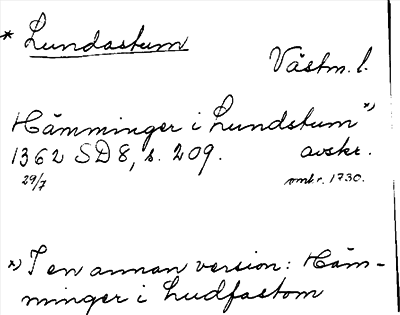 * Lundastum
Västm. l.
Hämminger i Lundstum *)
1362 SD 8, s. 209. avskr.
29/7 omkr. 1730.
*) I en annan version: Häm-
minger i Ludfastom